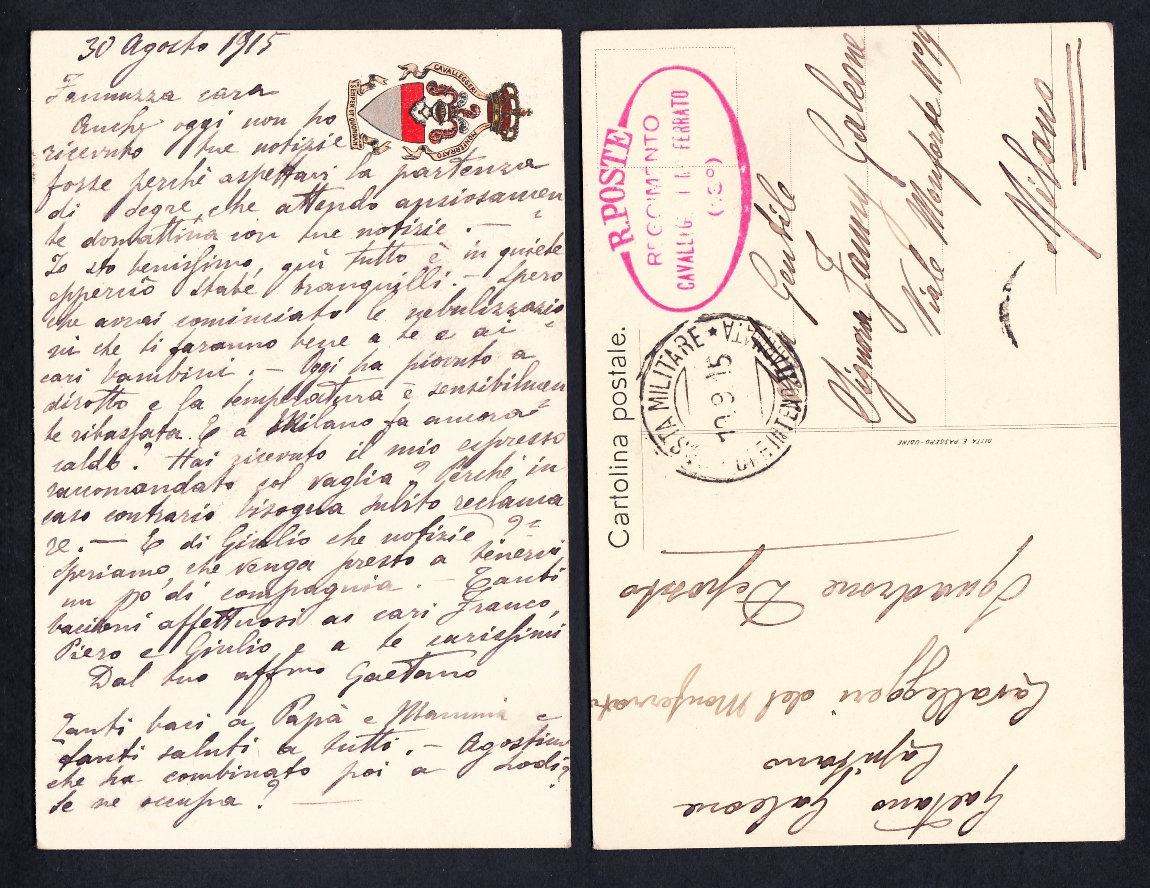 30 Agosto 1915
Fannuzza cara
Anche oggi non ho
ricevuto tue notizie
forse perchè aspettavi la partenza
di
che attendo ansiosamen
te domattina con tue notizie. —
Io sto benissimo, qui tutto è in quiete
epperciò state tranquilli. — Spero
che avrai cominciato le nebulizzazio
ni che ti faranno bene a te e ai
cari bambini. — Oggi ha piovuto a
dirotto e la temperatura è sensibilmen
te ribassata. E a Milano fa ancora
caldo? Hai ricevuto il mio espresso
raccomandato col vaglia? Perchè in
caso contrario bisogna subito reclama
re. — E di Giulio che notizie?
Speriamo, che venga presto a tenervi
un po' di compagnia. — Tanti
bacioni affettuosi ai cari Franco,
Piero e Giulio e a te carissimi
Dal tuo affmo Gaetano
Tanti baci a Papà e Mamma e
tanti saluti a tutti. — Agostino
che ha combinato poi a Lodi?
Se ne occupa? —
CAVALLEGGERI
MONFERRATO
R. POSTE
REGGIMENTO
CAVALLEGG FERRATO
Gentile
Signora Fanny Galeone
Viale Monforte N° 19
Milano
Cartolina postale.
POSTA MILITARE
D'INTENDENZA
DITTA E. PASSERO-UDINE
Gaetano Galeone
Capitano
Cavalleggeri del Monferrato
Squadrone Deposito